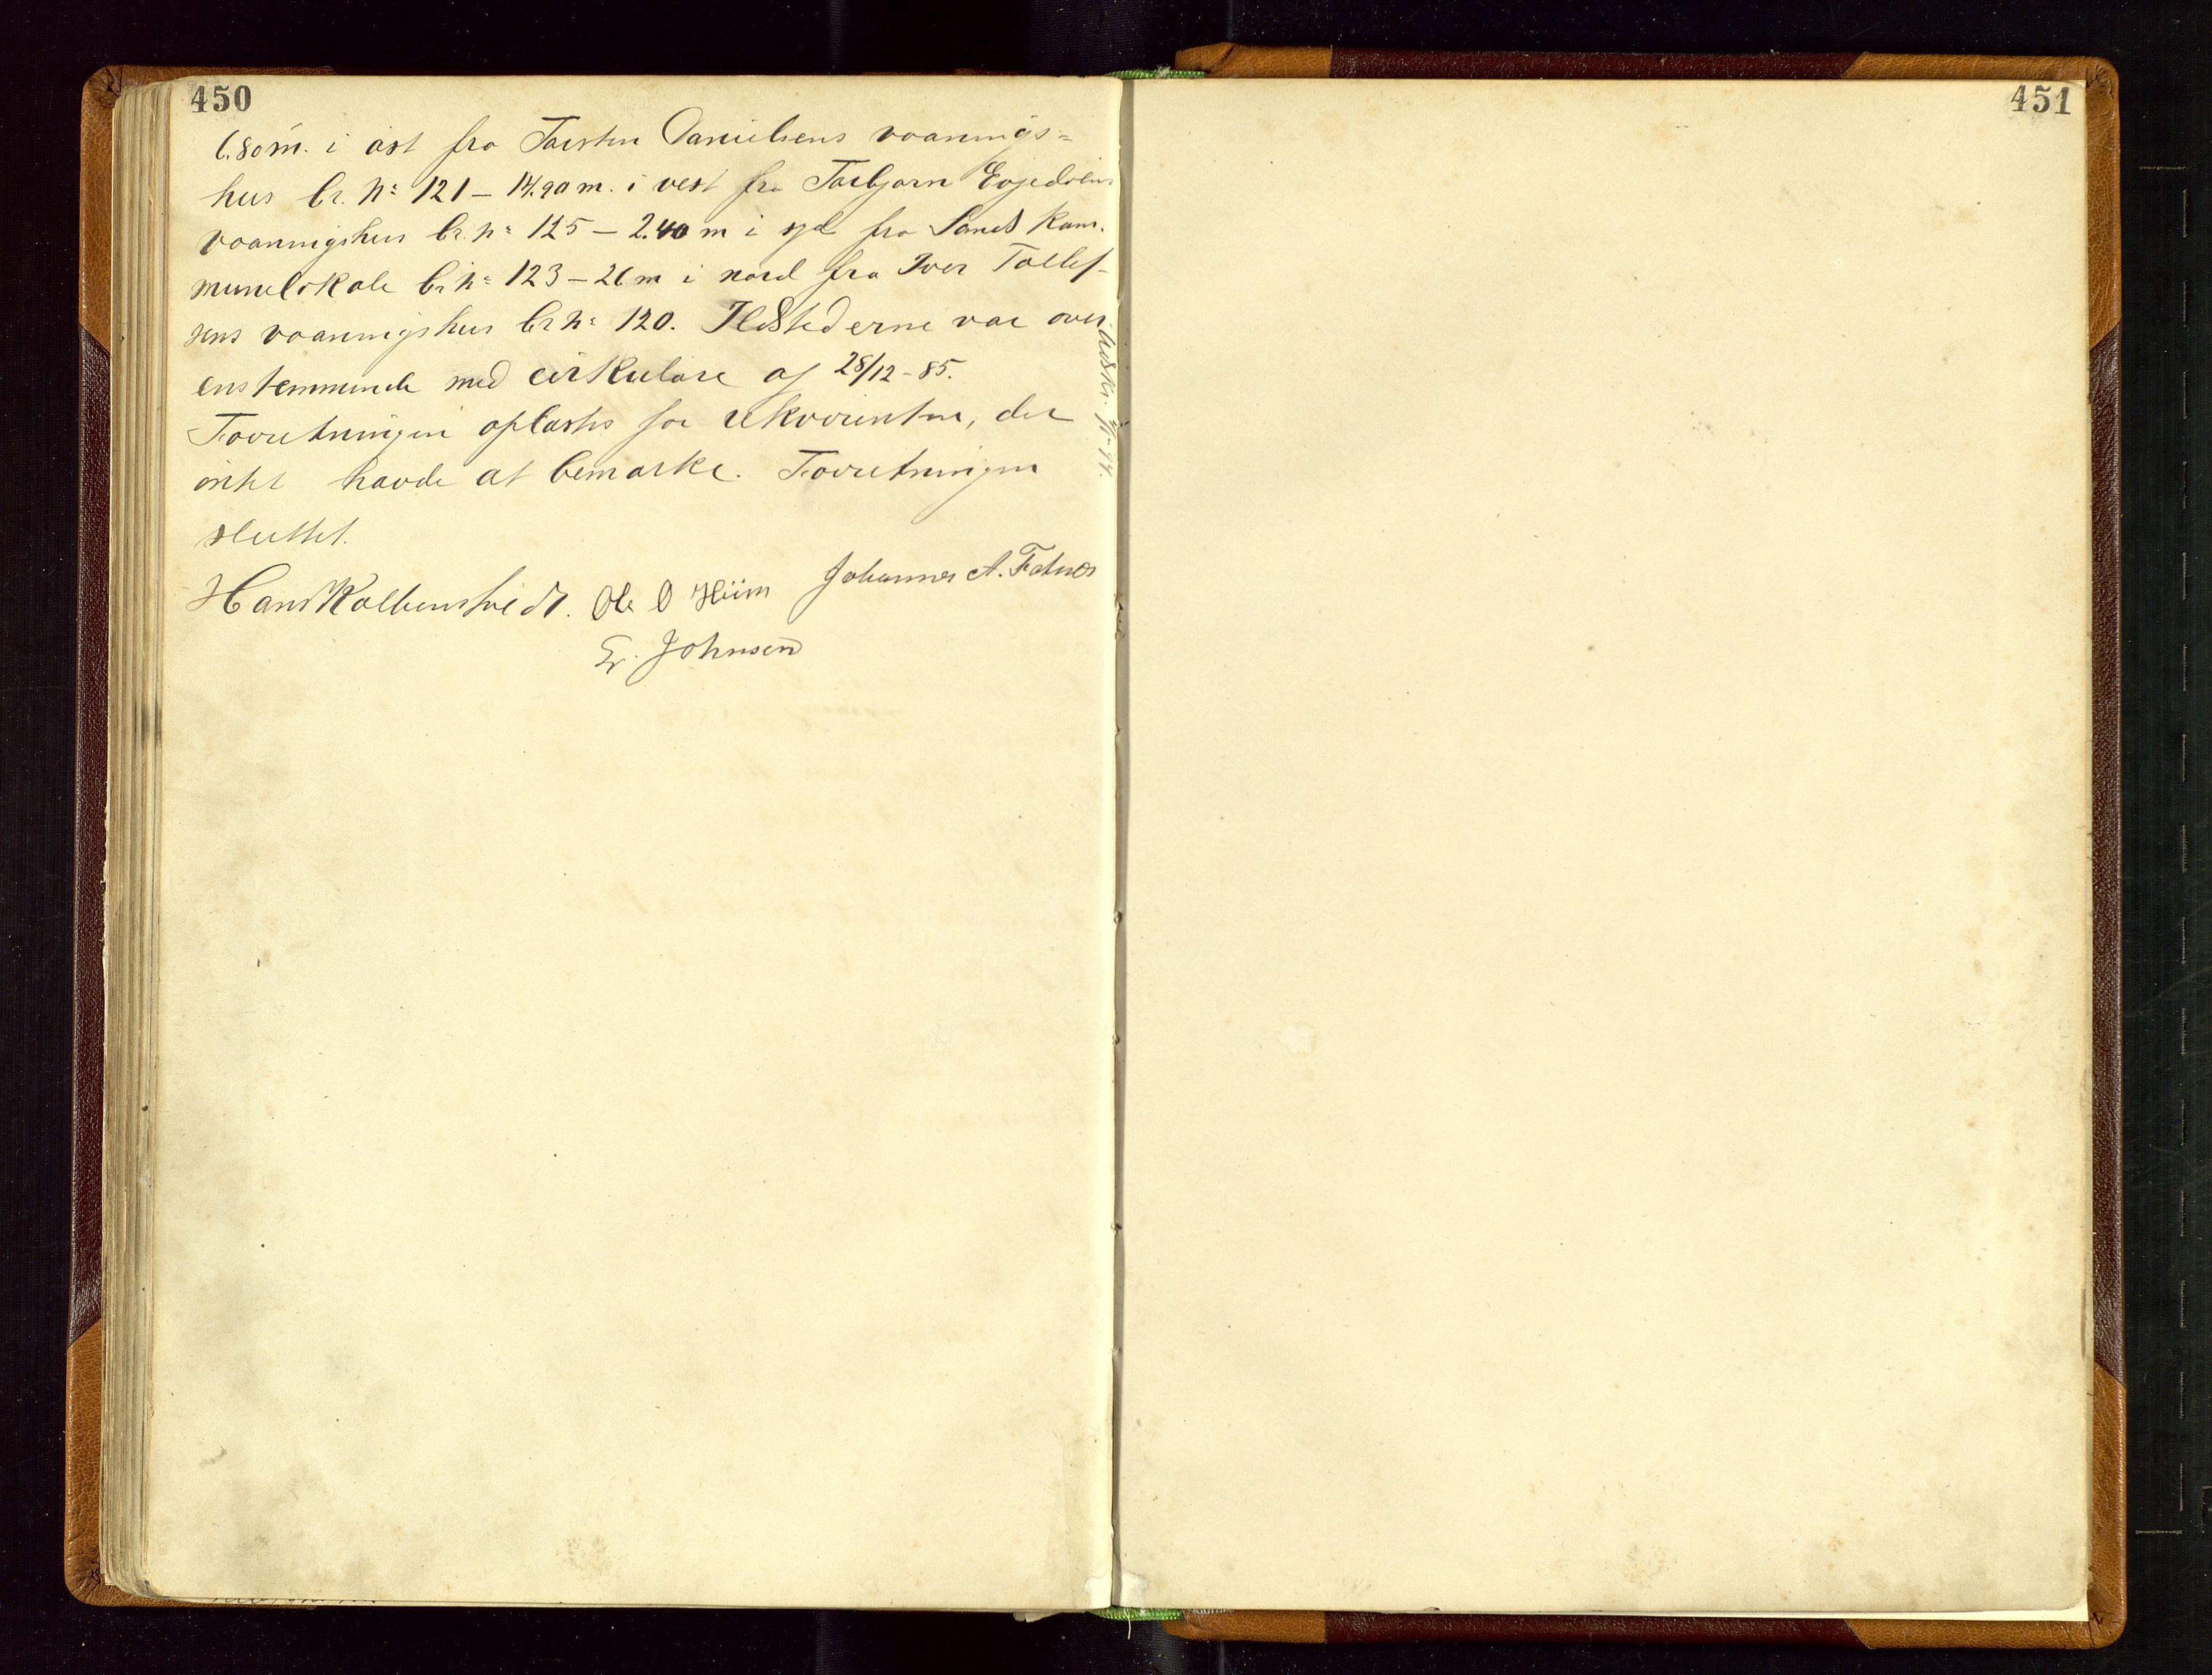 450
6.80 m. i øst fra Torsten Danielsens vaanings=
hus br. nº 121 – 14.90 m. i vest fra Torbjørn
vaaningshus br. nº 125 – 2.40 m i syd fra Sands kom-
munelokale br nº 123 – 26 m i nord fra Iver Tollef-
sens vaaningshus br nº 120. Ildstederne var over-
ensstemmende med cirkulære af 28/12-85.
Forretningen oplæstes for rekvirenten, der
intet havde at bemærke. Forretningen
sluttet.
Hans Kolbenstvedt. Ole O Hiim Johannes A. Fatnes
E. Johnsen
Udskr.
451